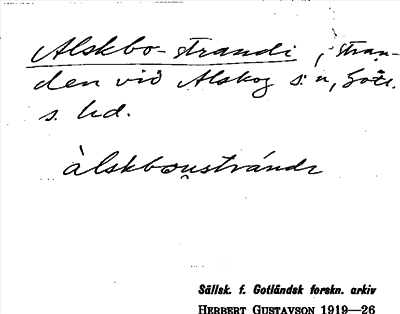 Alskbo-strandi, stran-
den vid Alskog s:n, Gotl.
s. hd.
àlskboustrándı
Sällsk. f. Gotländsk forskn. arkiv
HERBERT GUSTAVSON 1919—26